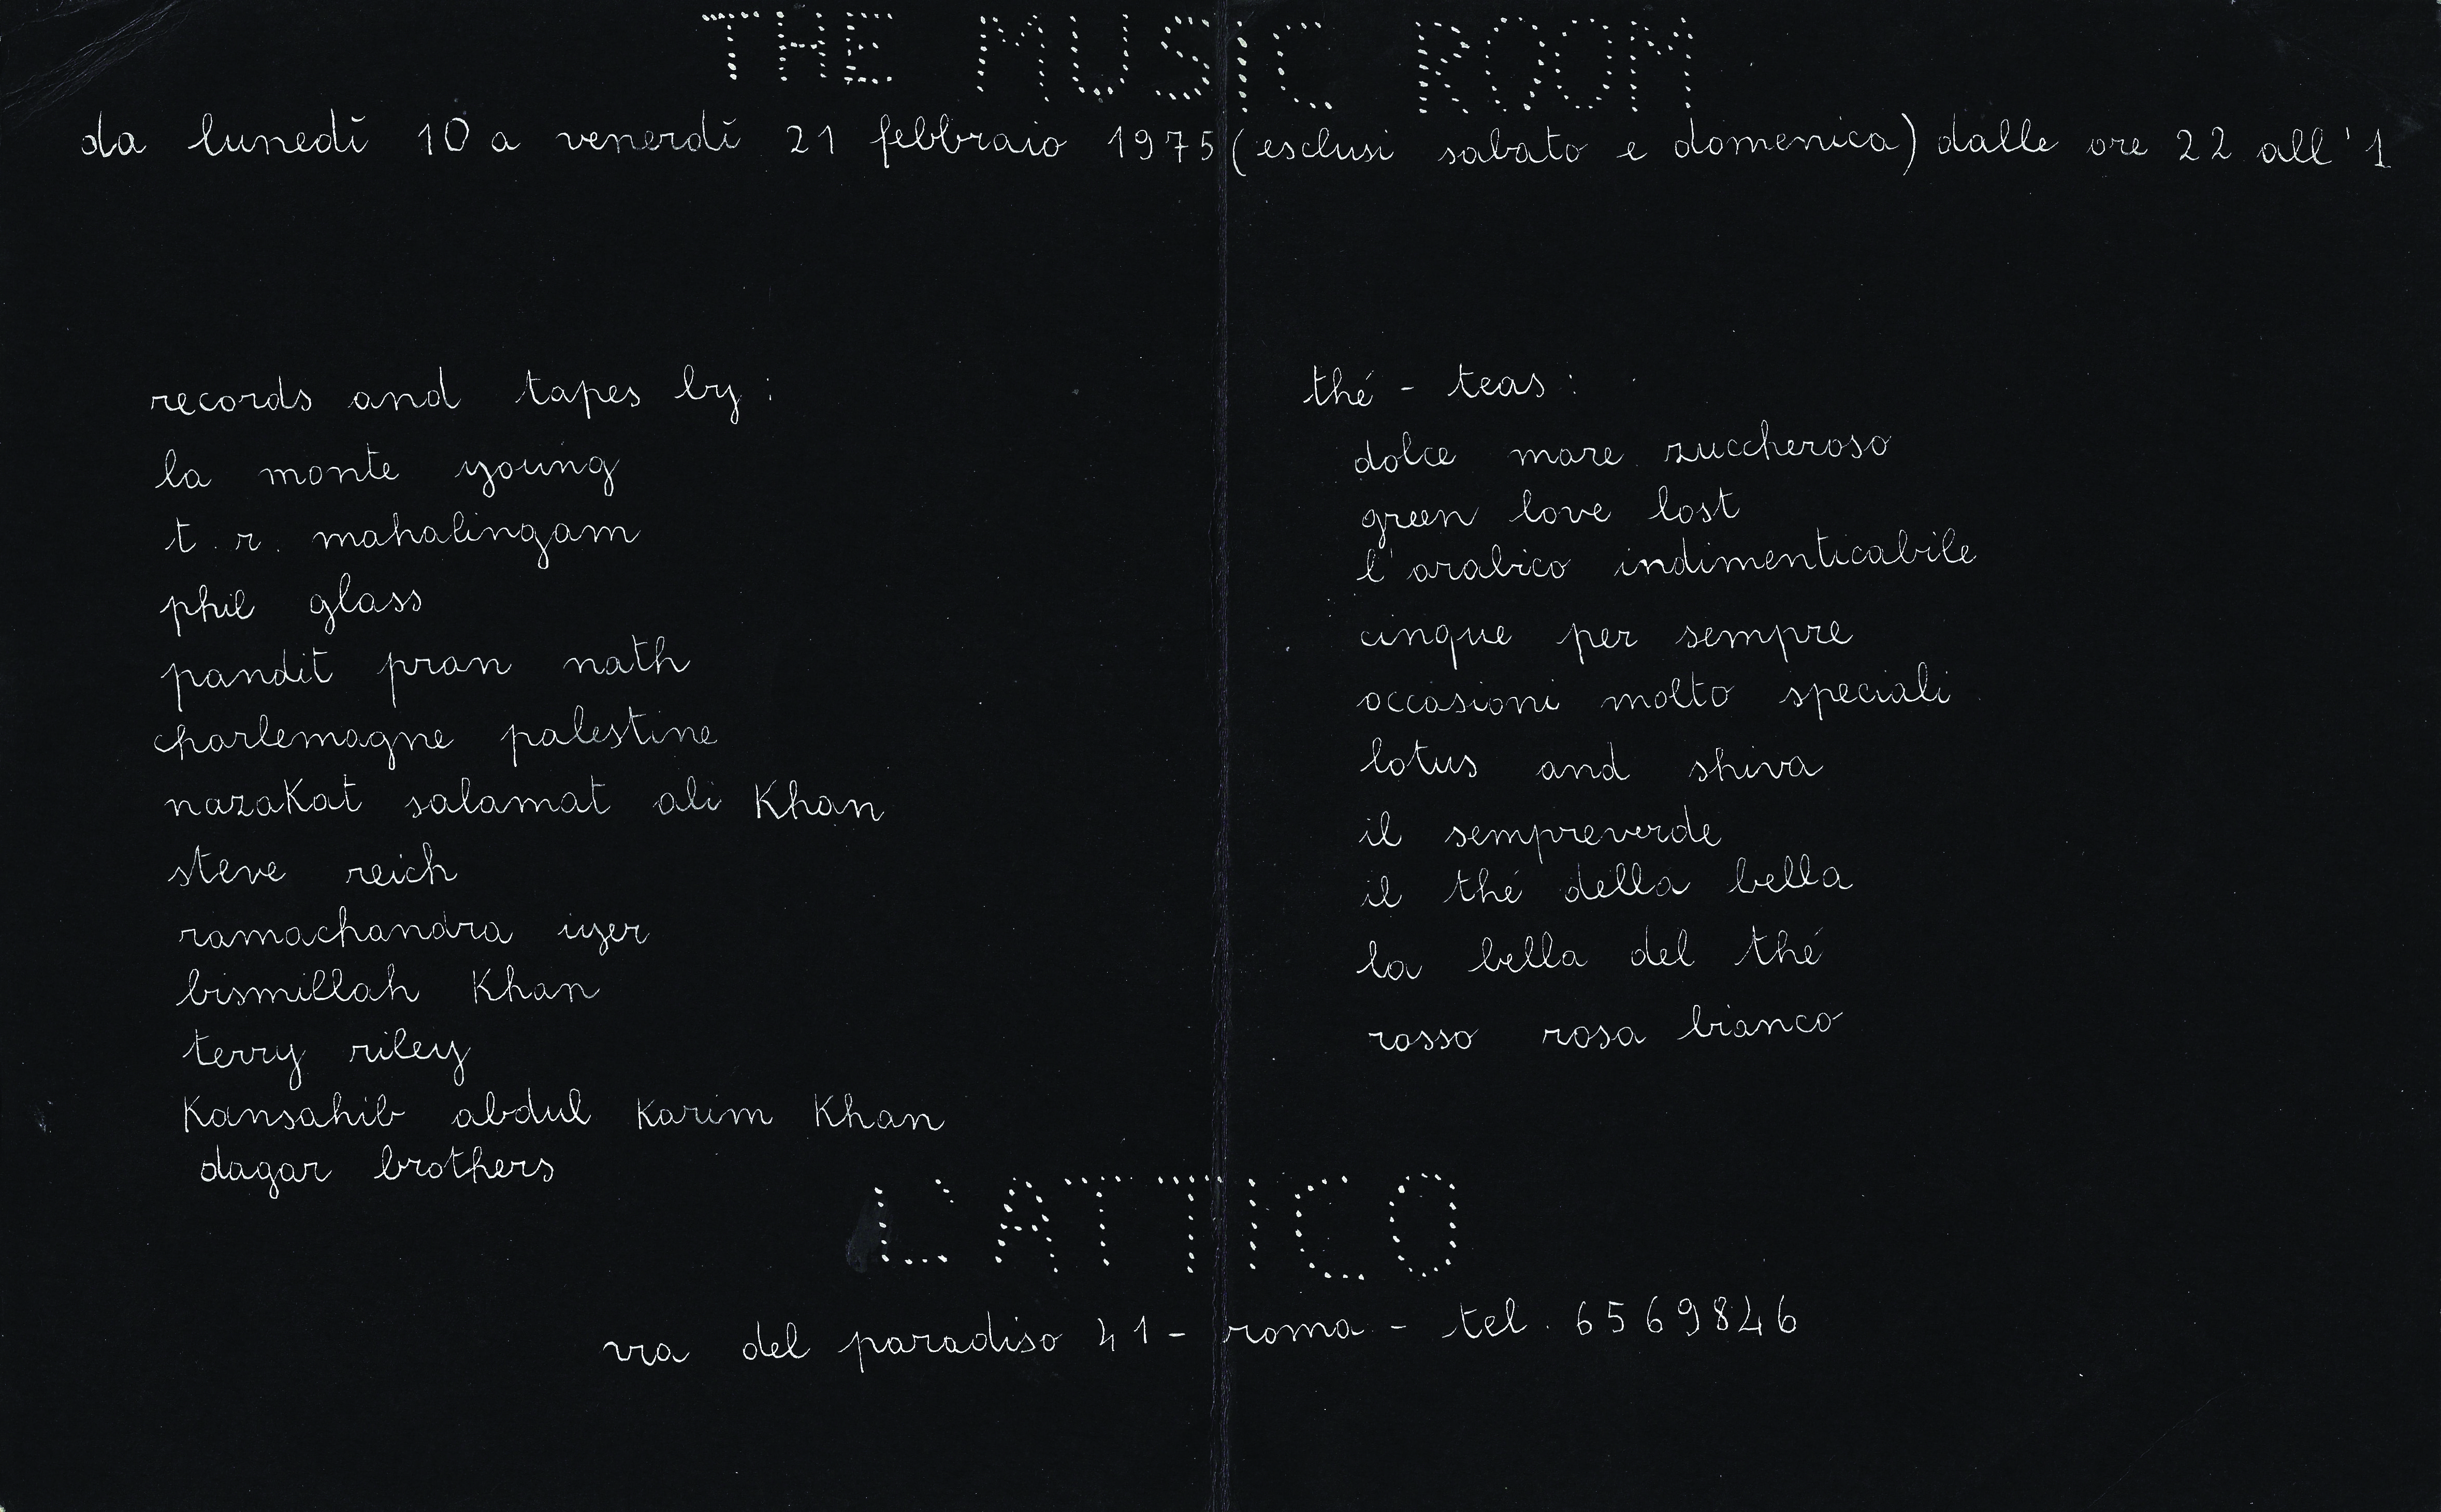 THE MUSIC ROOM
da lunedì 10 a venerdì 21 febbraio 1975 (esclusi sabato e domenica) dalle ore 22 all'1
records and tapes by:
la monte young
t. r. mahalingam
phil glass
pandit pran nath
charlemagne palestine
nazaKat salamat ali Khan
steve reich
ramachandra iyer
bismillah Khan
terry riley
Kansahib abdul Karim Khan
dagar brothers
thé - teas:
dolce mare zuccheroso
green love lost
l'arabico indimenticabile
cinque per sempre
occasioni molto speciali
lotus and shiva
il sempreverde
il thé della bella
la bella del thé
rosso rosa bianco
L'ATTICO
via del paradiso 41 - roma - tel. 6569846